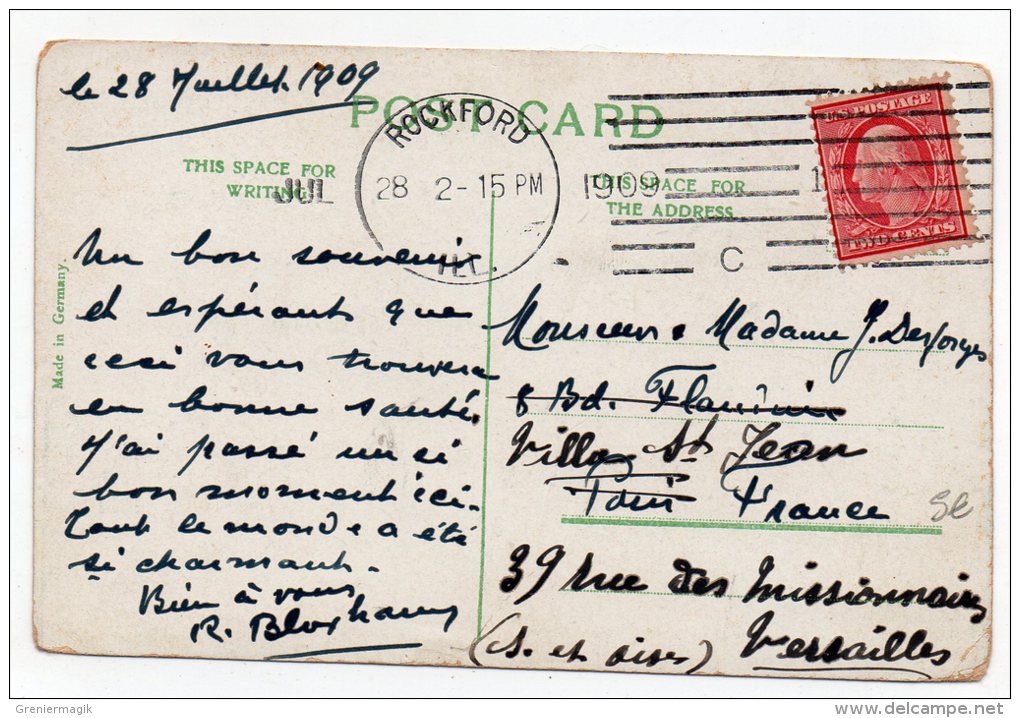 le 28 Juillet 1909
POST CARD
ROCKFORD
JUL 28 2-15 PM 1909
ILL.
C
U.S. POSTAGE
TWO CENTS
THIS SPACE FOR
WRITING
THIS SPACE FOR
THE ADDRESS
Made in Germany.
Un bon souvenir
et espérant que
ceci vous trouvera
en bonne santé.
J'ai passé un si
bon moment ici.
Tout le monde a été
si charmant.
Bien à vous
R. Bloxham
Monsieur & Madame J. Desforges
8 Bd. Flandrin
Villa St Jean
Paris France
39 rue des Missionnaires
Versailles
(S. et Oise)
Greniermagik
www.delcampe.net